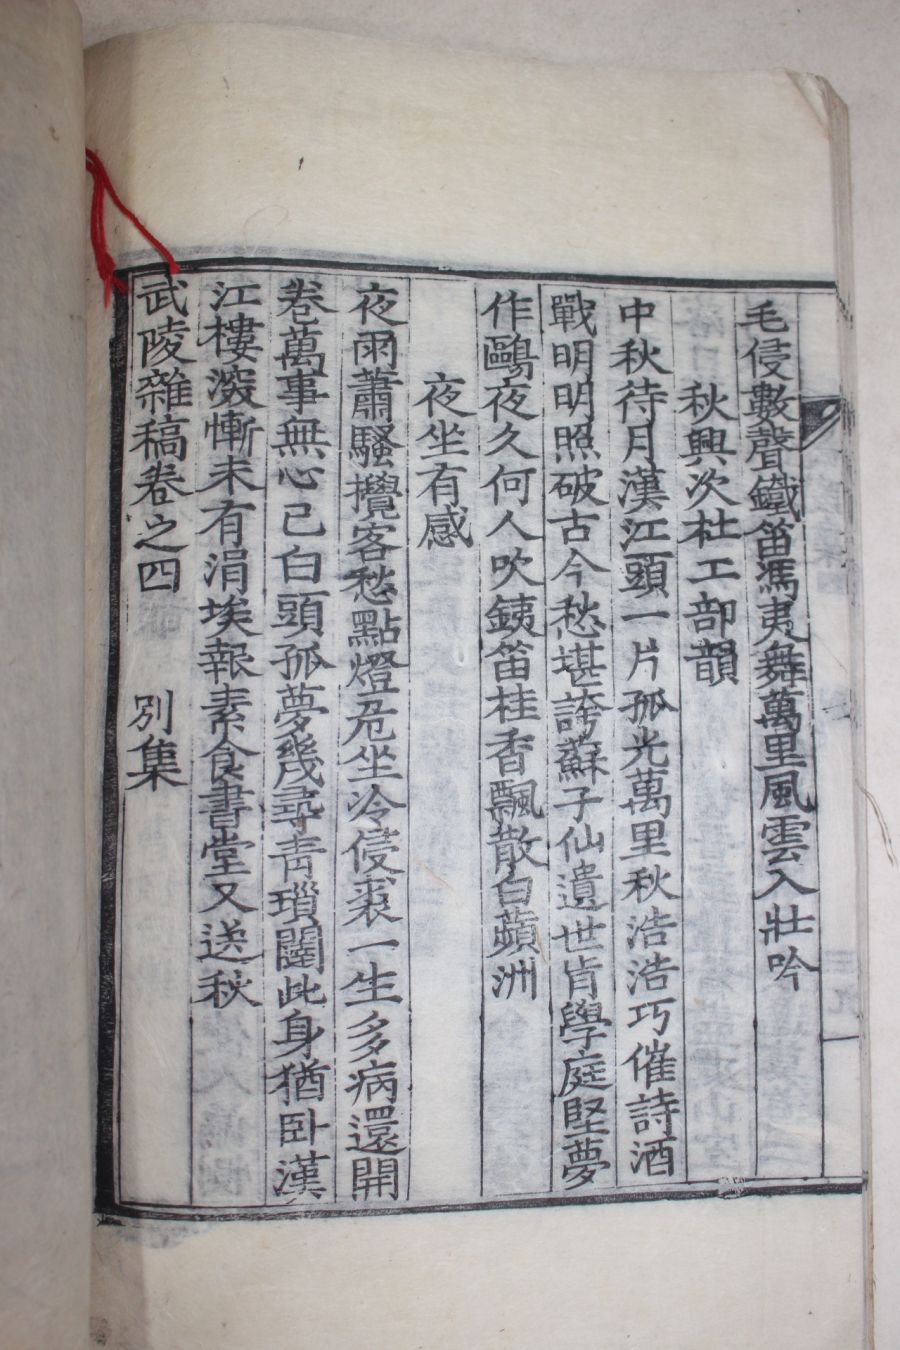 毛侵數聲鐵笛馮夷舞萬里風雲入壯吟
秋興次杜工部韻
中秋待月漢江頭一片孤光萬里秋浩浩巧催詩酒
戰明明照破古今愁堪誇蘇子仙遺世肯學庭堅夢
作鷗夜久何人吹銕笛桂香飄散白蘋洲
夜坐有感
夜雨蕭騷攪客愁點燈危坐冷侵裘一生多病還開
卷萬事無心已白頭孤夢幾尋靑瑣闥此身猶卧漢
江樓深慚未有涓埃報素食書堂又送秋
武陵雜稿卷之四 別集